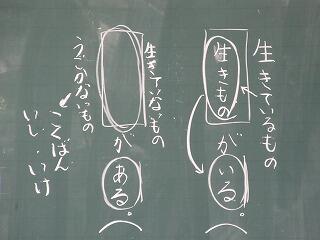 生きているもの
生きものがいる。
生きていないもの
がある。
うごかないもの
こくばん
いし、いけ